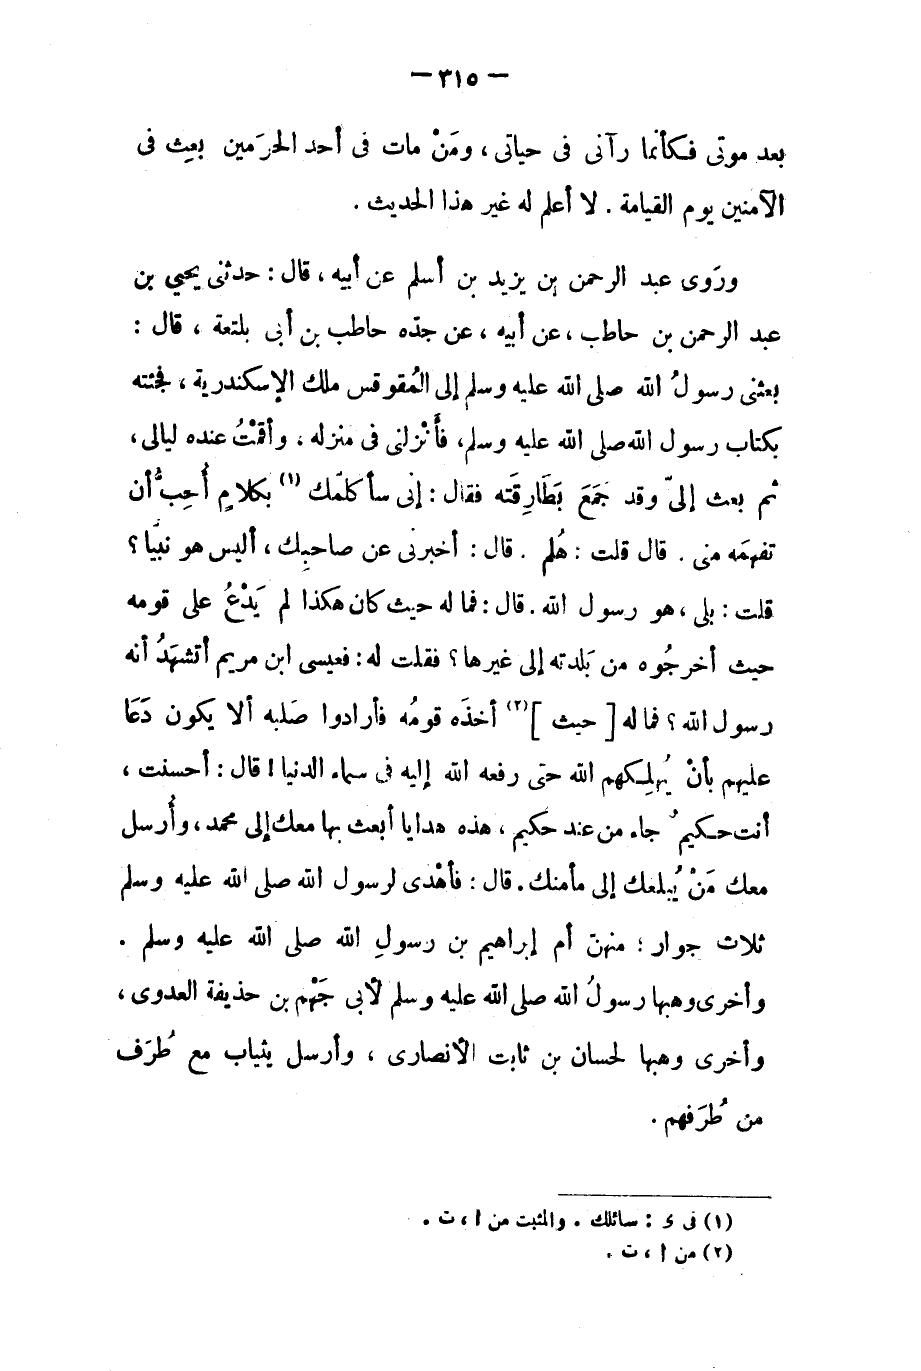 — ٣١٥ —
بعد موتى فكأنما رآنى فى حياتى ، ومَنْ مات فى أحد الحرَمين بعِث فى
الآمنين يوم القيامة . لا أعلم له غير هذا الحديث .
ورَوى عبد الرحمن بن يزيد بن أسلم عن أبيه ، قال : حدثنى يحيي بن
عبد الرحمن بن حاطب ، عن أبيه ، عن جدّه حاطب بن أبى بلتعة ، قال :
بعثنى رسولُ الله صلى الله عليه وسلم إلى المُقوقس ملك الإسكندرية ، فجئته
بكتاب رسول الله صلى الله عليه وسلم، فأَنْزلنى فى منزله ، وأقمْتُ عنده ليالى ،
ثم بعث إلىّ وقد جَمَعَ بَطَارِقَته فقال : إنى سأكلّمك (١) بكلامٍ أُحِبُّ أن
تفهمَه منى . قال قلت : هُلم . قال : أخبرنى عن صاحبِك ، أليس هو نبيًّا ؟
قلت : بلى ، هو رسول الله . قال : فما له حيث كان هكذا لم يَدْعُ على قومه
حيث أخرجُوه من بَلدته إلى غيرها ؟ فقلت له : فعيسى ابن مريم أتشهَدُ أنه
رسول الله ؟ فما له [ حيث ](٢) أخذَه قومُه فأرادوا صَلبه ألا يكون دَعَا
عليهم بأنْ يُهلِكهم الله حتى رفعه الله إليه فى سماء الدنيا ! قال : أحسنت ،
أنت حكيمٌ جاء من عند حكيم ، هذه هدايا أبعث بها معك إلى محمد ، وأُرسل
معك مَنْ يُبلغك إلى مأمنك . قال : فأهْدى لرسول الله صلى الله عليه وسلم
ثلاث جوار ؛ منهنّ أم إبراهيم بن رسولِ الله صلى الله عليه وسلم .
وأخرى وهبها رسولُ الله صلى الله عليه وسلم لأبى جَهْم بن حذيفة العدوى ،
وأخرى وهبها لحسان بن ثابت الأنصارى ، وأرسل بثياب مع طُرَف
من طُرَفهم .
(١) فى ى : سائلك . والمثبت من ا ، ت .
(٢) من ا ، ت .